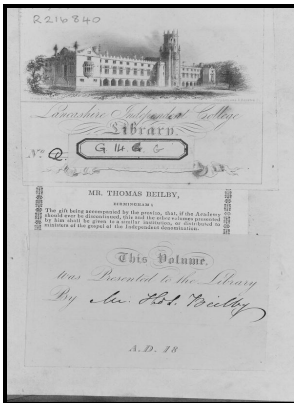 R216840
Lancashire Independent College
Library.
No. 2.
G 14 G
MR. THOMAS BEILBY,
BIRMINGHAM;
The gift being accompanied by the proviso, that, if the Academy
should ever be discontinued, this and the other volumes presented
by him shall be given to a similar institution, or distributed to
ministers of the gospel of the Independent denomination.
This Volume,
was Presented to the Library
By Mr. Thos. Beilby
A.D. 18